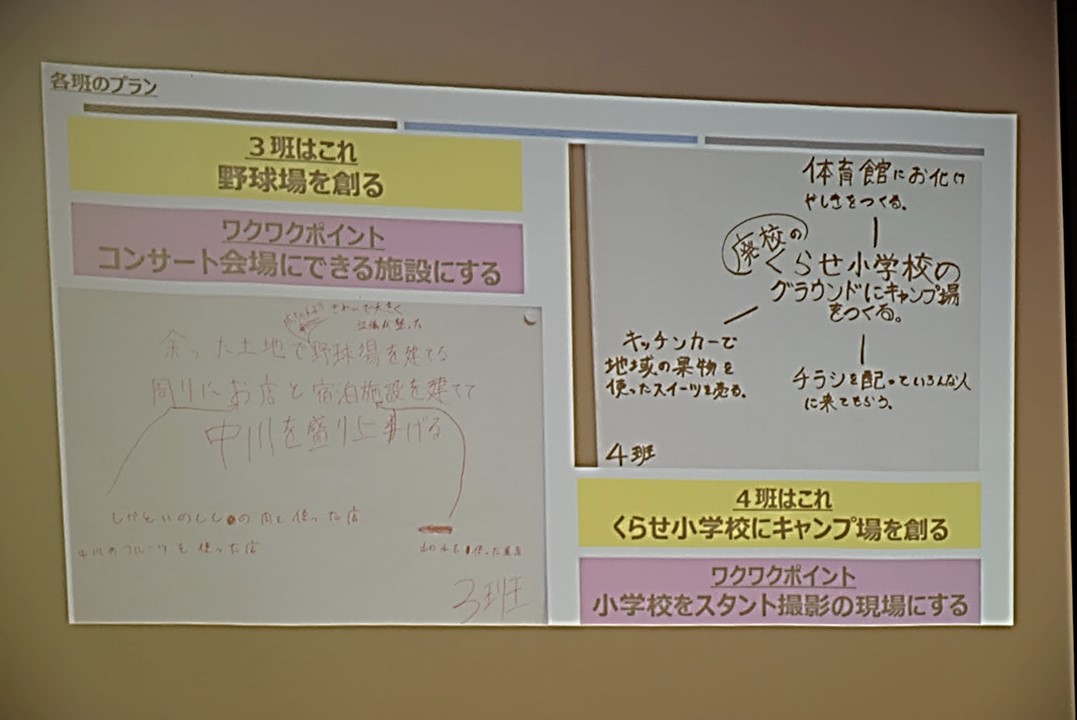 各班のプラン
3班はこれ
野球場を創る
ワクワクポイント
コンサート会場にできる施設にする
設備が整った
余った土地で野球場を建てる
周りにお店と宿泊施設を建てて
中川を盛り上げる
しかといのししの肉を使った店
中川のフルーツを使った店
3班
体育館にお化け
やしきをつくる。
廃校の
くらせ小学校の
グラウンドにキャンプ場
をつくる。
キッチンカーで
地域の果物を
使ったスイーツを売る。
チラシを配っていろんな人
に来てもらう。
4班
4班はこれ
くらせ小学校にキャンプ場を創る
ワクワクポイント
小学校をスタント撮影の現場にする